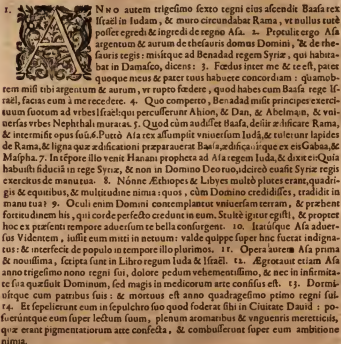 1. ANNO autem trigesimo sexto regni eius ascendit Baasa rex
Israël in Iudam, & muro circundabat Rama, vt nullus tutè
posset egredi & ingredi de regno Asa. 2. Protulit ergo Asa
argentum & aurum de thesauris domus Domini, & de the-
sauris regis: misitque ad Benadad regem Syriæ, qui habita-
bat in Damasco, dicens: 3. Fœdus inter me & te est, pater
quoque meus & pater tuus habuere concordiam: quamob-
rem misi tibi argentum & aurum, vt rupto fœdere, quod habes cum Baasa rege Is-
raël, facias eum à me recedere. 4. Quo comperto, Benadad misit principes exerci-
tuum suorum ad vrbes Israël: qui percusserunt Ahion, & Dan, & Abelmain, & vni-
uersas vrbes Nephthali muratas. 5. Quod cùm audisset Baasa, desiit ædificare Rama,
& intermisit opus suũ. 6. Porrò Asa rex assumpsit vniuersum Iudã, & tulerunt lapides
de Rama, & ligna quæ ædificationi præparauerat Baasa, ædificauitque ex eis Gabaa, &
Maspha. 7. In tẽpore illo venit Hanani propheta ad Asa regem Iuda, & dixit ei: Quia
habuisti fiduciã in rege Syriæ, & non in Domino Deo tuo, idcircò euasit Syriæ regis
exercitus de manu tua. 8. Nónne Æthiopes & Libyes multò plures erant, quadri-
gis & equitibus, & multitudine nimia: quos, cùm Domino credidisses, tradidit in
manu tua? 9. Oculi enim Domini contemplantur vniuersam terram, & præbent
fortitudinem his, qui corde perfecto credunt in eum. Stultè igitur egisti, & propter
hoc ex præsenti tempore aduersum te bella consurgent. 10. Iratúsque Asa aduer-
sus Videntem, iussit eum mitti in neruum: valde quippe super hoc fuerat indigna-
tus: & interfecit de populo in tempore illo plurimos. 11. Opera autem Asa prima
& nouissima, scripta sunt in Libro regum Iuda & Israël. 12. Ægrotauit etiam Asa
anno trigesimo nono regni sui, dolore pedum vehementissimo, & nec in infirmita-
te sua quæsiuit Dominum, sed magis in medicorum arte confisus est. 13. Dormi-
uitque cum patribus suis: & mortuus est anno quadragesimo primo regni sui.
14. Et sepelierunt eum in sepulchro suo quod foderat sibi in Ciuitate Dauid: po-
sueruntque eum super lectum suum, plenum aromatibus & vnguentis meretriciis,
quæ erant pigmentatiorum arte confecta, & combusserunt super eum ambitione
nimia.